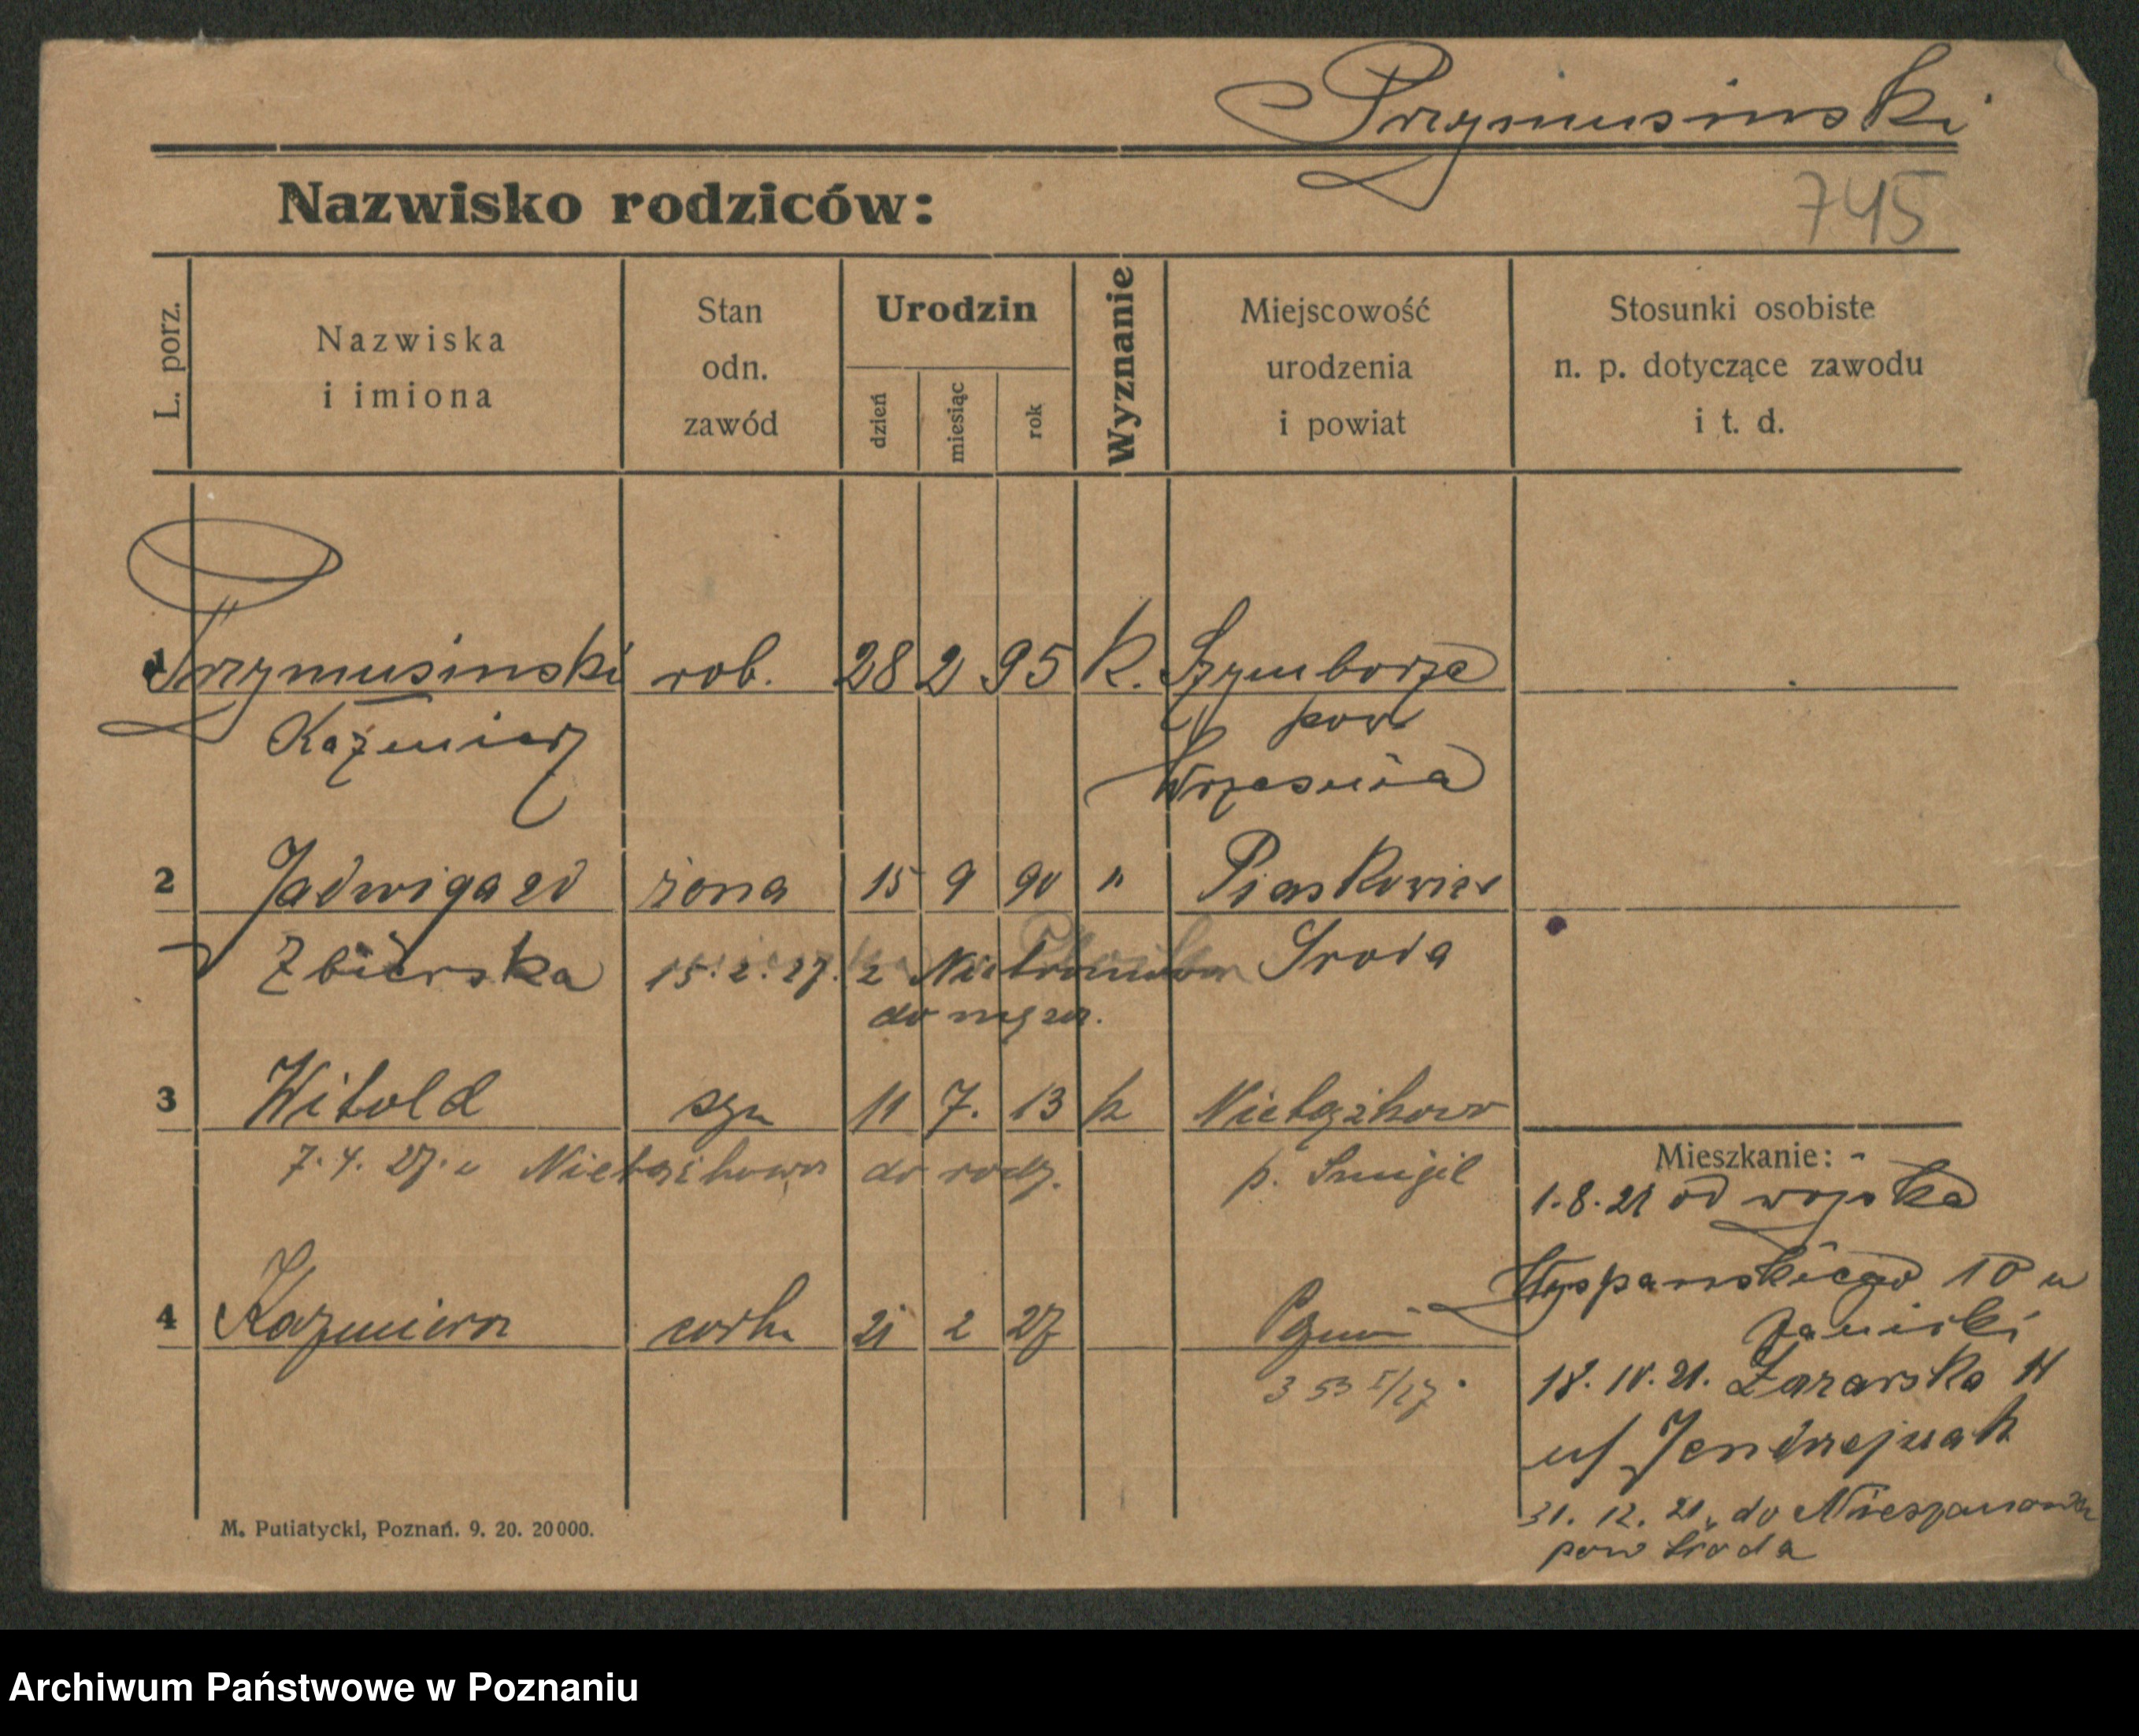 Przymusinski
Nazwisko rodziców:
745
L. porz.
Nazwiska
i imiona
Stan
odn.
zawód
Urodzin
dzień
miesiąc
rok
Wyznanie
Miejscowość
urodzenia
i powiat
Stosunki osobiste
n. p. dotyczące zawodu
i t. d.
1 Przymusinski rob. 28 2 95 k. Szymborze
Kaźmierz pow
Września
2 Jadwiga zd żona 15 9 90 " Piaskowice
Zbierska 15. 2. 27. z Środa
do męża.
3 Witold syn 11 7. 13 k Nietążkowo
7. 4. 27. z Nietążkowa do rodz. p. Śmigiel
Mieszkanie:
1. 8. 21 od wojska
4 Kazmiera corka 21 2 27 Pozn
Wyspanskiego 10 u
Janiski
353 I/27.
18. 10. 21. 11
u/ Jendrzejczak
31. 12. 21. do
pow Środa
M. Putiatycki, Poznań. 9. 20. 20000.
Archiwum Państwowe w Poznaniu